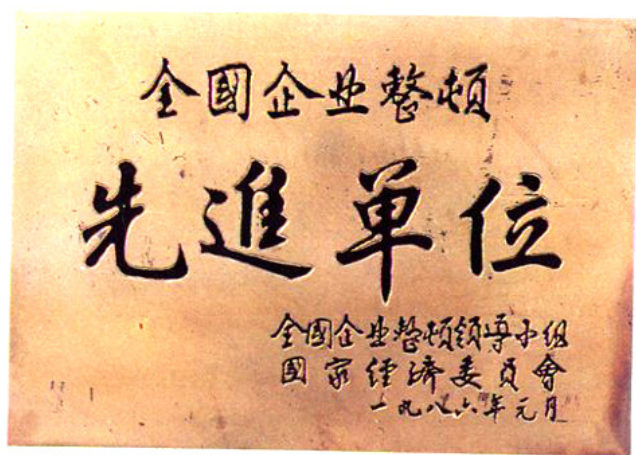 全國企业整頓
先進单位
全國企业整頓領导小组
國家经济委员會
一九八六年元月